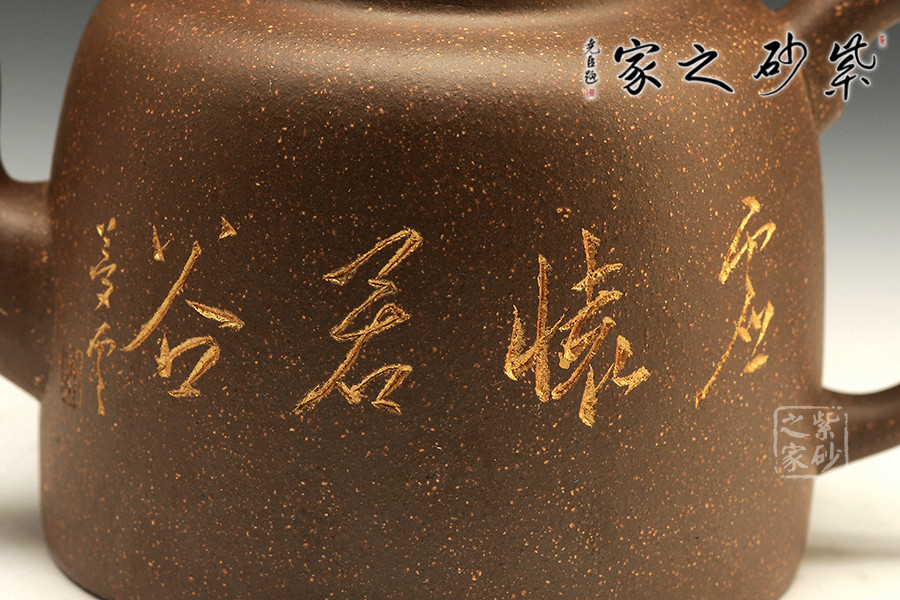 紫砂之家
虚懷若谷
紫砂
之家